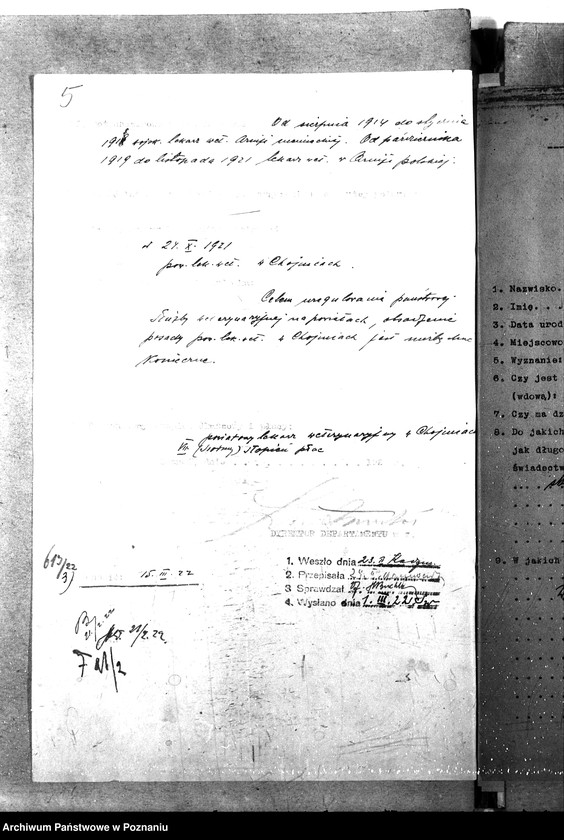 5
Od sierpnia 1914 do stycznia
1918 wojsk. lekarz wet. Armji niemieckiej. Od października
1919 do listopada 1921 lekarz wet. w Armji polskiej.
d 24. X. 1921
pow. lek. wet. w Chojnicach.
Celem uregulowania państwowej
służby weterynaryjnej na powiatach, obsadzenie
posady pow. lek. wet. w Chojnicach jest niezbędnie
konieczne.
powiatowy lekarz weterynaryjny w Chojnicach
VII. (siódmy) stopień płac
DYREKTOR DEPARTAMENTU
1. Weszło dnia 23.2
2. Przepisała
3 Sprawdzał
4. Wysłano dnia 1. III. 22
613/22
3)
15. III. 22
21/2.22
1. Nazwisko.
2. Imię. . .
3. Data urod
4. Miejscowo
5. Wyznanie:
6. Czy jest
(wdową):
7. Czy ma dz
8. Do jakich
jak długo
świadectw
9. W jakich
Archiwum Państwowe w Poznaniu